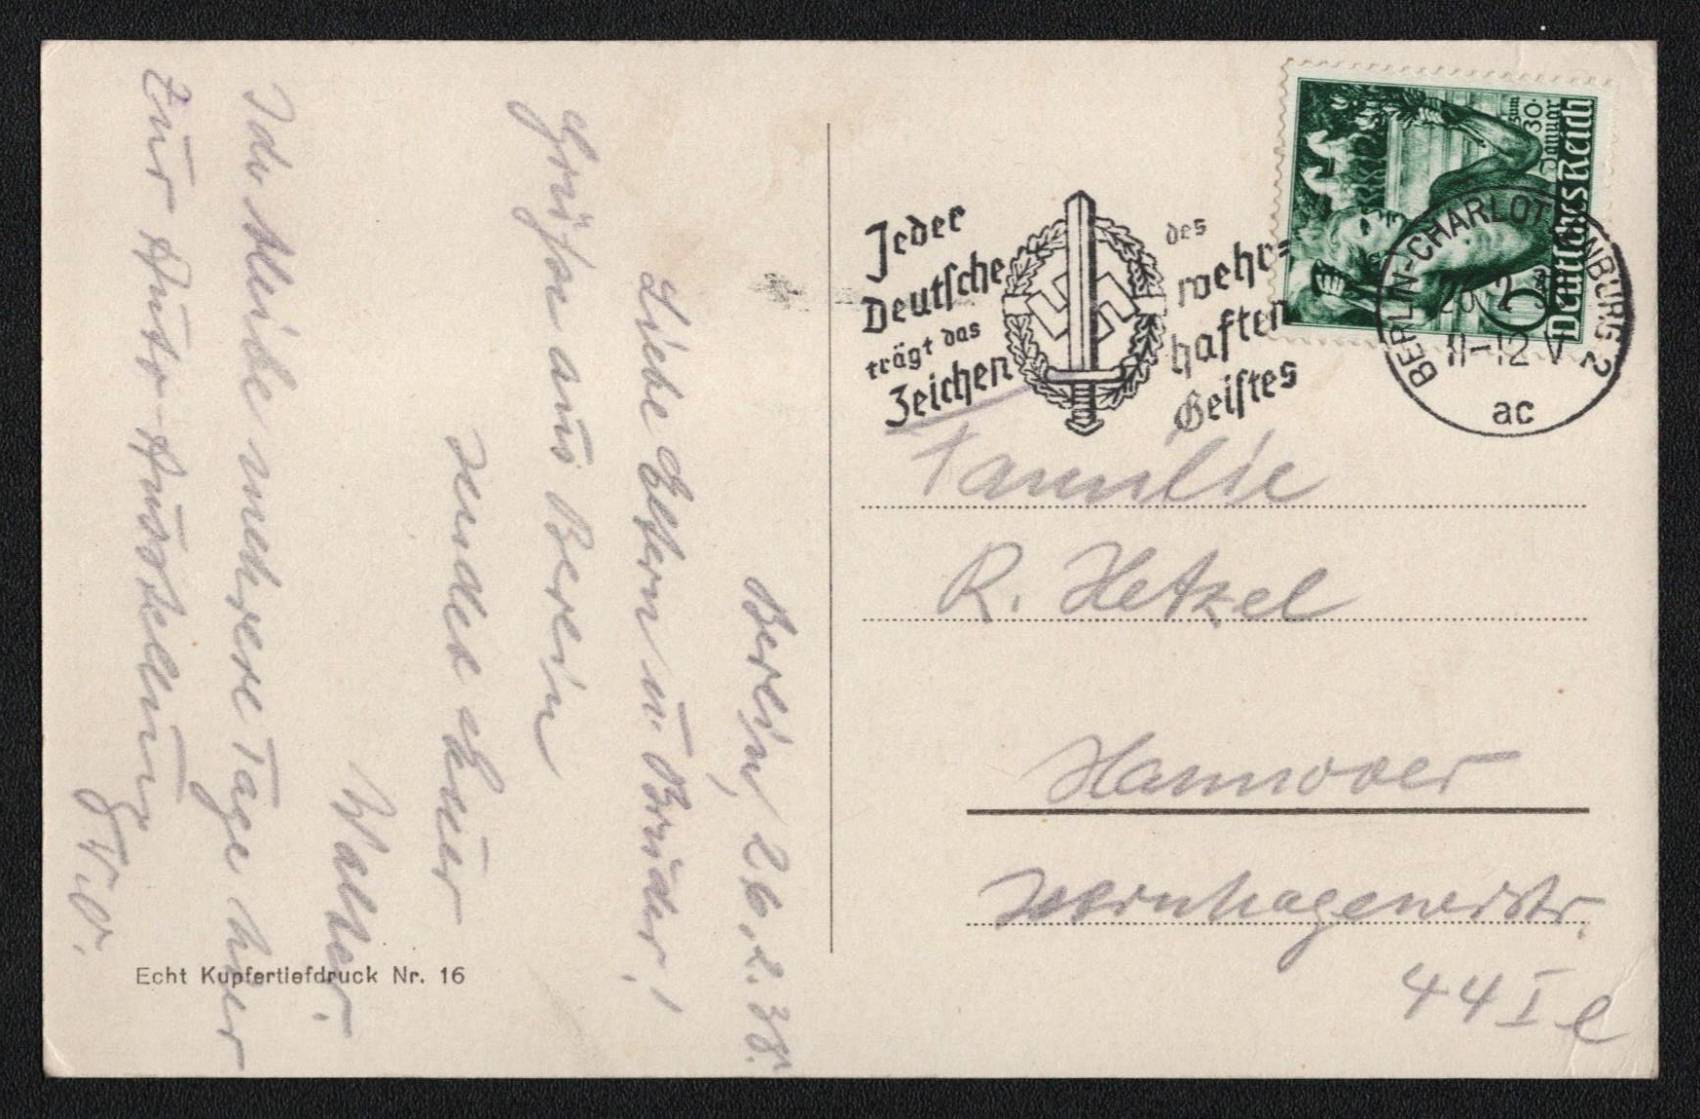 Berlin, 26.2.38.
Liebe Eltern u. Bruder!
Grüße aus Berlin
sendet Euer
Walter.
Ich bleibe mehrere Tage hier
zur Auto-Ausstellung
D.O.
Echt Kupfertiefdruck Nr. 16
Jeder
Deutsche
trägt das
Zeichen
des
wehr-
haften
Geistes
zum
30.
Januar
Deutsches Reich
6
BERLIN-CHARLOTTENBURG 2
11-12 V
ac
Familie
R. Hetzel
Hannover
Isernhagenerstr.
44 I e